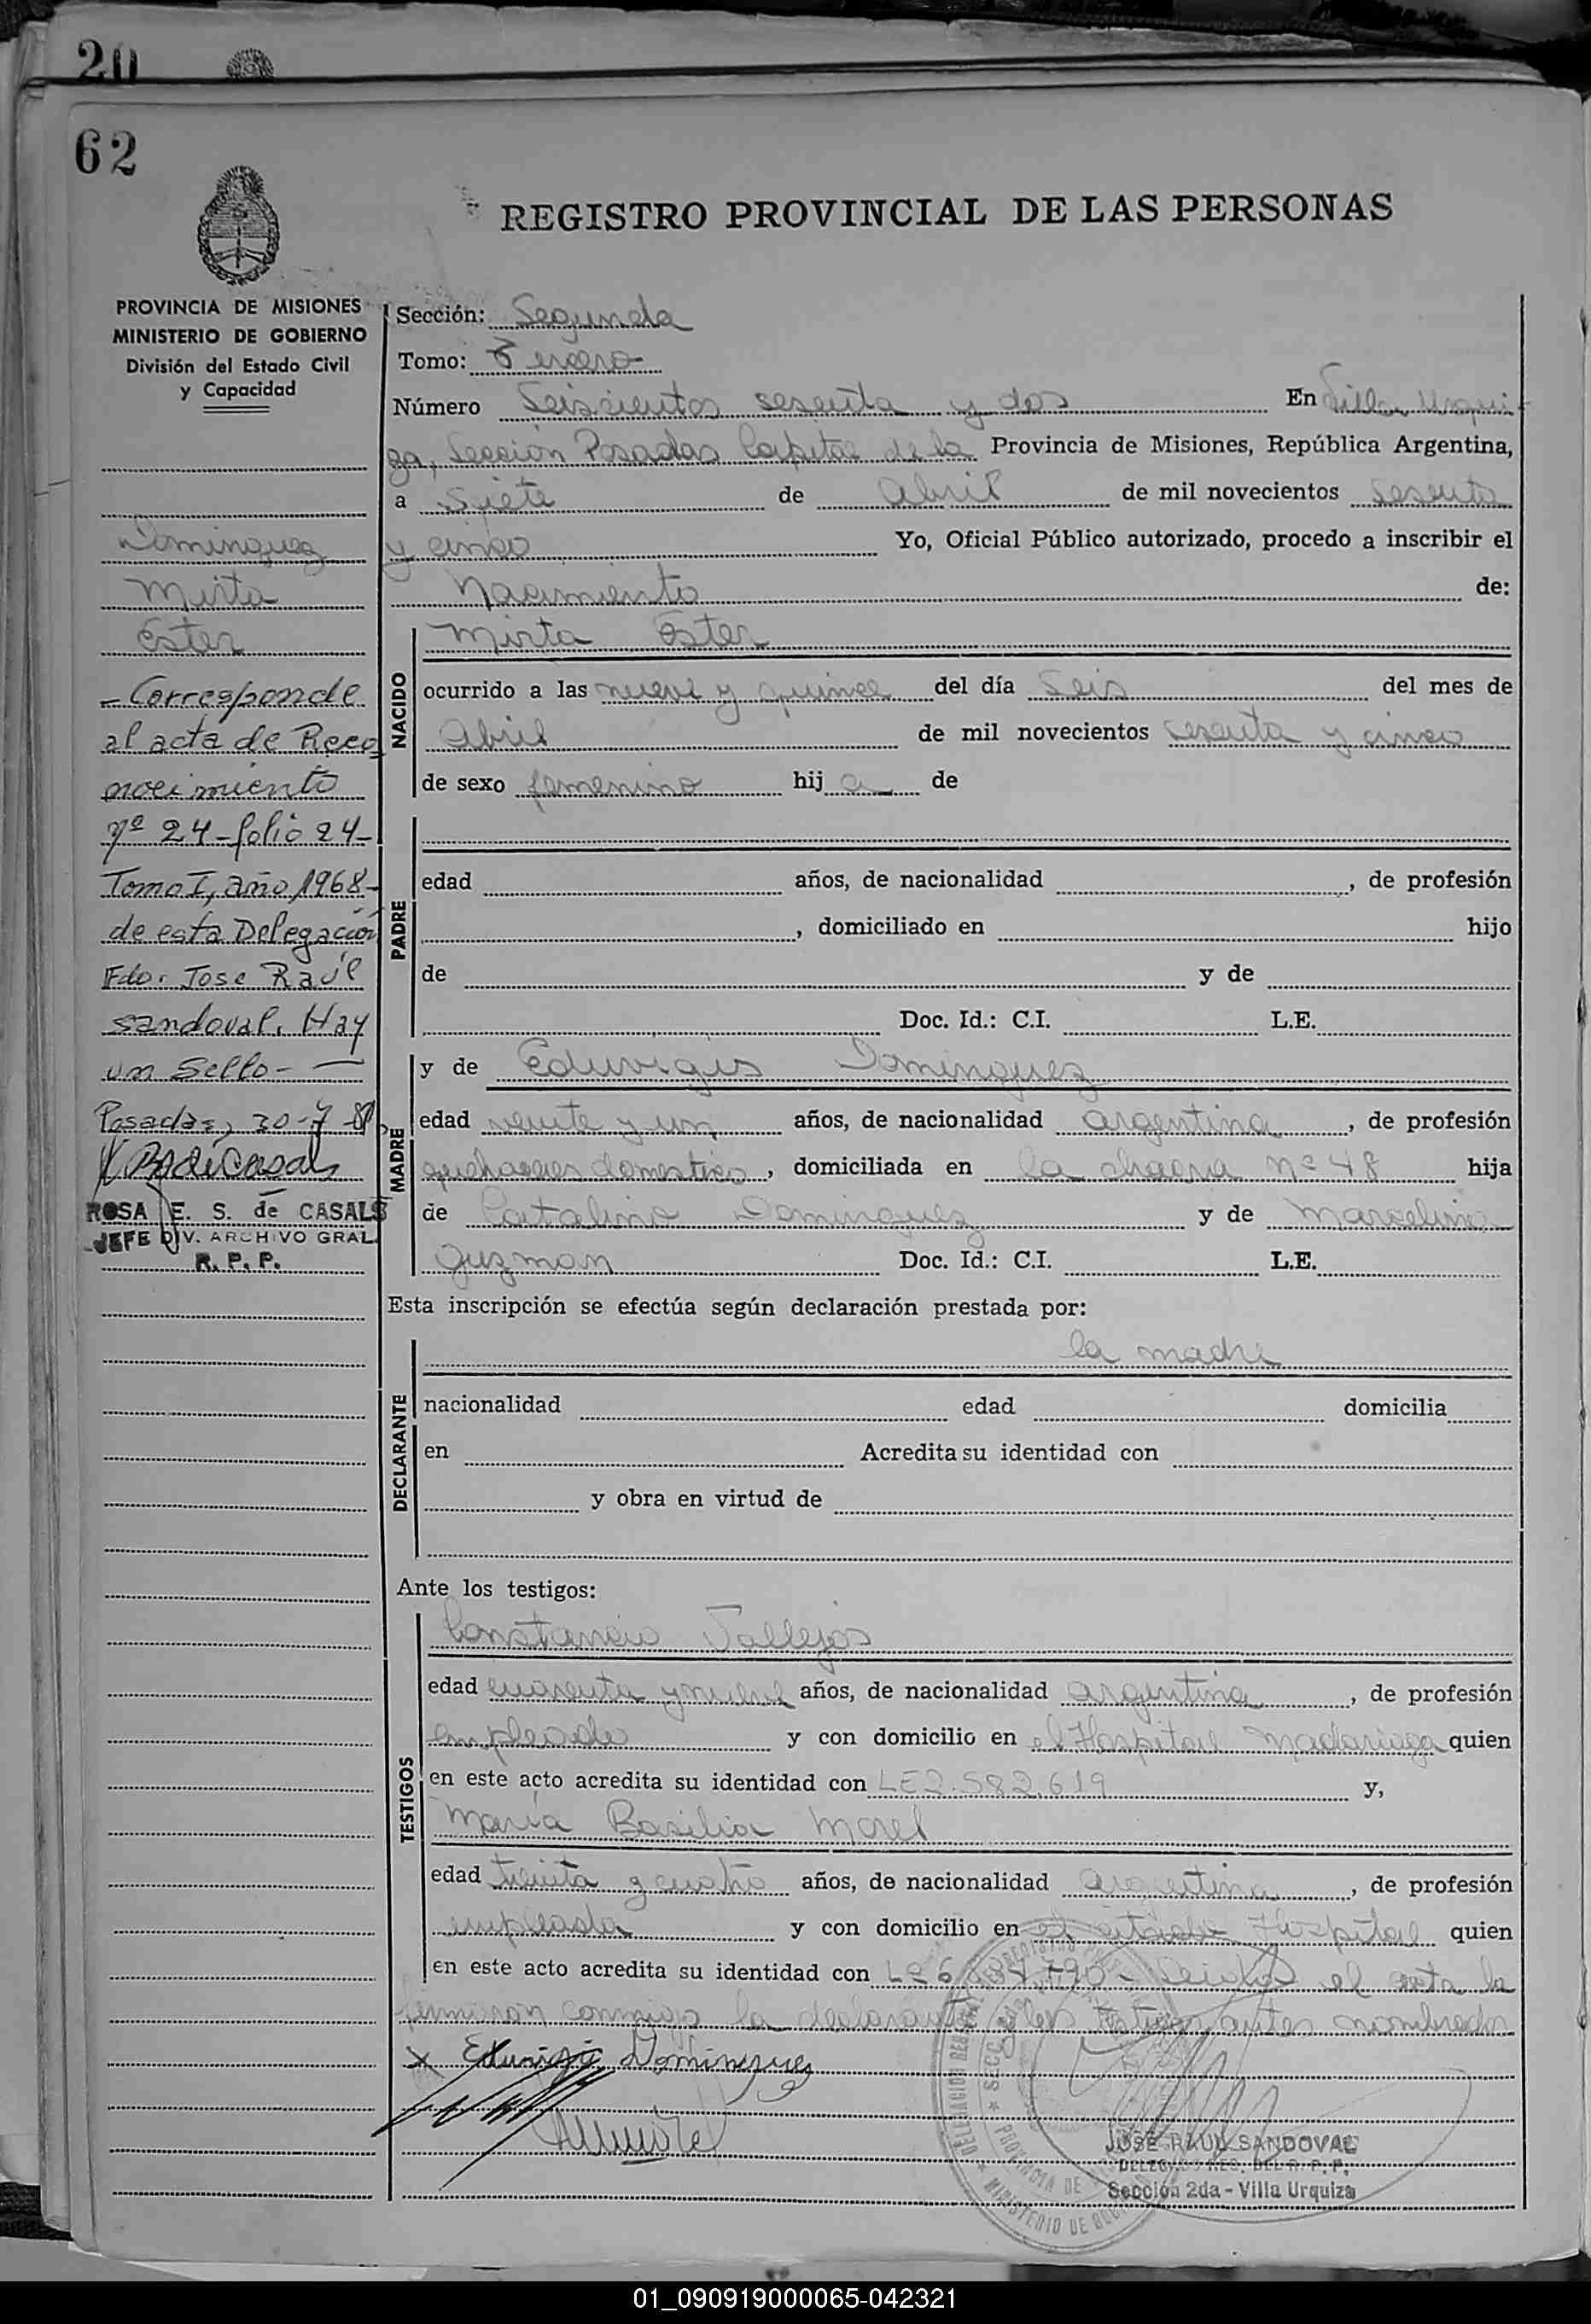 20
62
REGISTRO PROVINCIAL DE LAS PERSONAS
PROVINCIA DE MISIONES
MINISTERIO DE GOBIERNO
División del Estado Civil
y Capacidad
Dominguez
Mirta
Ester
- Corresponde
al acta de Reco
nocimiento
Nº 24 - folio 24 -
Tomo I, año 1968 -
de esta Delegación
Fdo. Jose Raúl
Sandoval. Hay
un Sello -
Posadas, 30-7-
ROSA E. S. de CASALS
JEFE DIV. ARCHIVO GRAL.
R. P. P.
Sección: Segunda
Tomo: Tercero
Número Seiscientos sesenta y dos En Villa Urqui
za, Sección Posadas Capital de la Provincia de Misiones, República Argentina,
a siete de abril de mil novecientos sesenta
y cinco Yo, Oficial Público autorizado, procedo a inscribir el
Nacimiento de:
NACIDO
Mirta Ester
ocurrido a las nueve y quince del día seis del mes de
abril de mil novecientos sesenta y cinco
de sexo femenino hija de
PADRE
edad años, de nacionalidad , de profesión
, domiciliado en hijo
de y de
Doc. Id.: C.I. L.E.
MADRE
y de Eduvigis Dominguez
edad veinte y un años, de nacionalidad argentina, de profesión
quehaceres domesticos, domiciliada en la chacra nº 48 hija
de Catalino Dominguez y de Marcelina
Guzman Doc. Id.: C.I. L.E.
Esta inscripción se efectúa según declaración prestada por:
DECLARANTE
la madre
nacionalidad edad domicilia
en Acredita su identidad con
y obra en virtud de
Ante los testigos:
TESTIGOS
Constancio Vallejos
edad cuarenta y nueve años, de nacionalidad argentina, de profesión
empleado y con domicilio en el Hospital Madariaga quien
en este acto acredita su identidad con LE2.582.619 y,
María Basilia Morel
edad treinta y cuatro años, de nacionalidad argentina, de profesión
empleada y con domicilio en el citado Hospital quien
en este acto acredita su identidad con el acta la
firmaron conmigo la declarante y los testigos antes nombrados
x Eduvigis Dominguez
JOSE RAUL SANDOVAL
DELEGADO REG. DEL R. P. P.
Sección 2da - Villa Urquiza
01_090919000065-042321